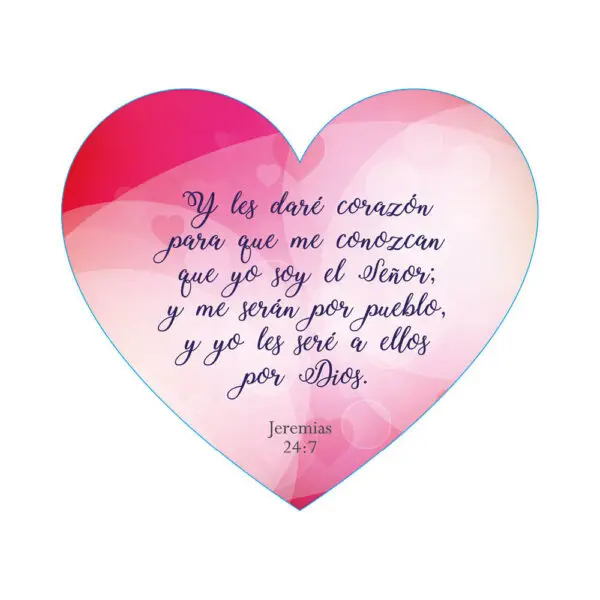 Y les daré corazón
para que me conozcan
que yo soy el Señor;
y me serán por pueblo,
y yo les seré a ellos
por Dios.
Jeremias
24:7